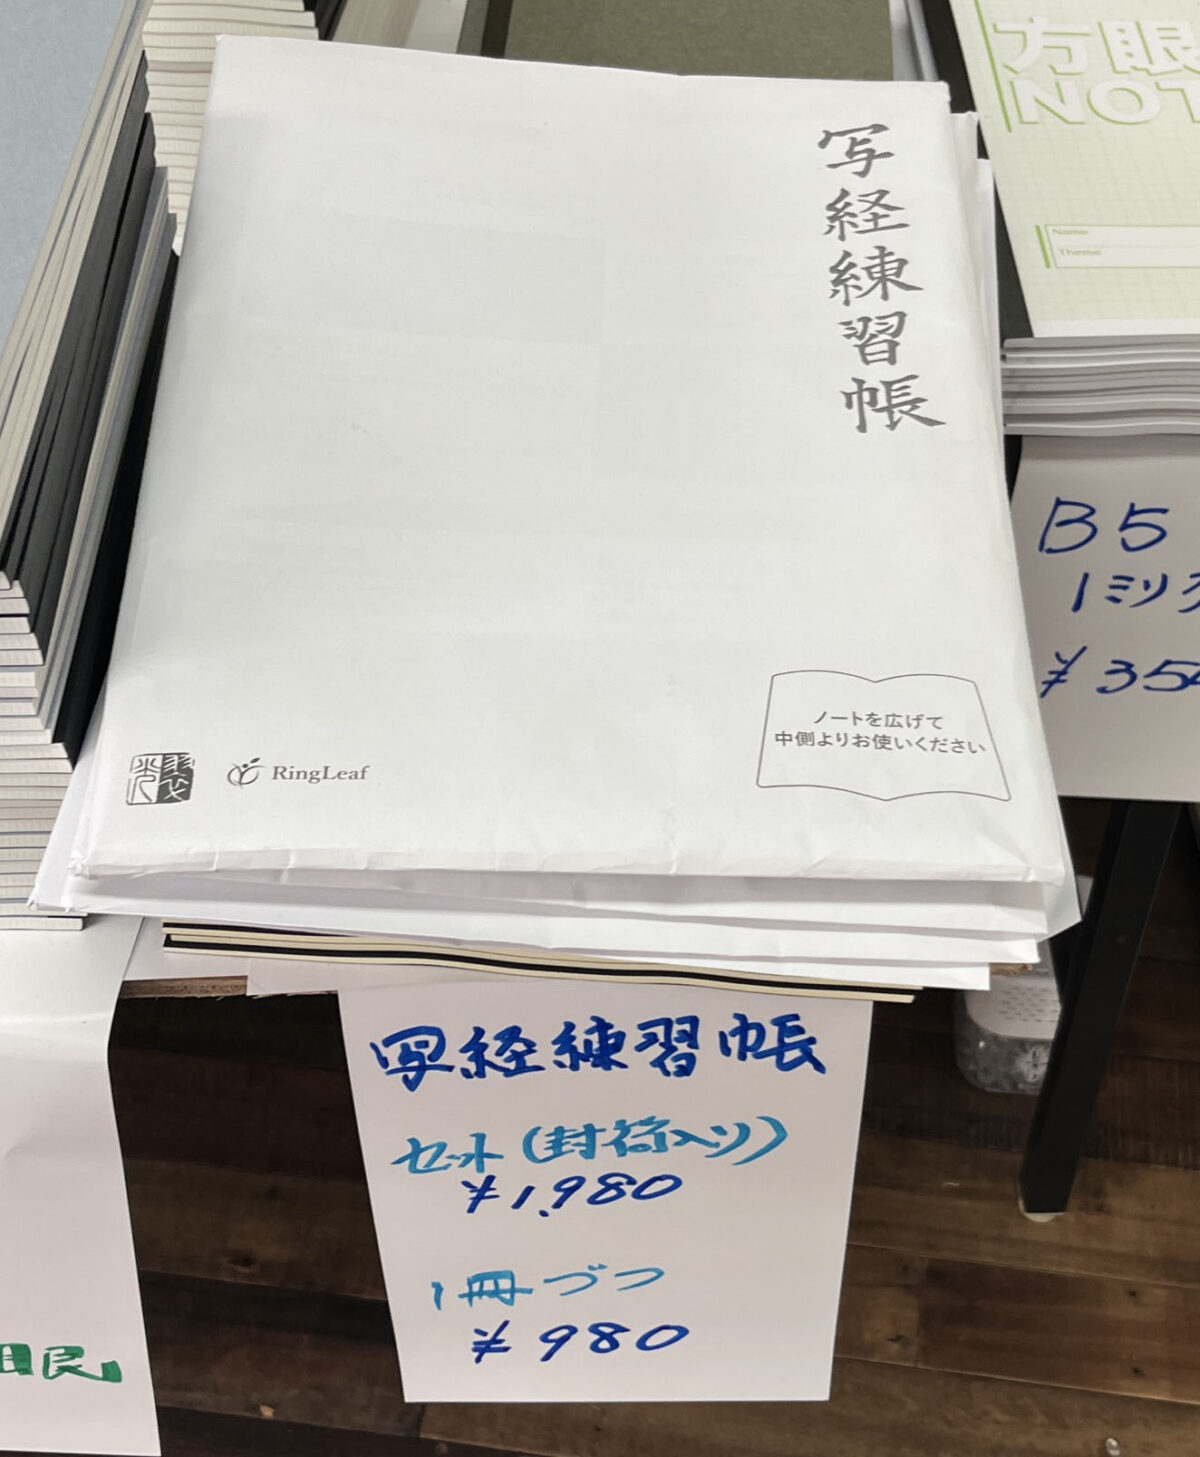 写経練習帳
RingLeaf
ノートを広げて
中側よりお使いください
方眼
NOT
Name
Theme
B5
1ミリ
¥354
写経練習帳
セット(封筒入り)
¥1,980
1冊づつ
¥980
眼